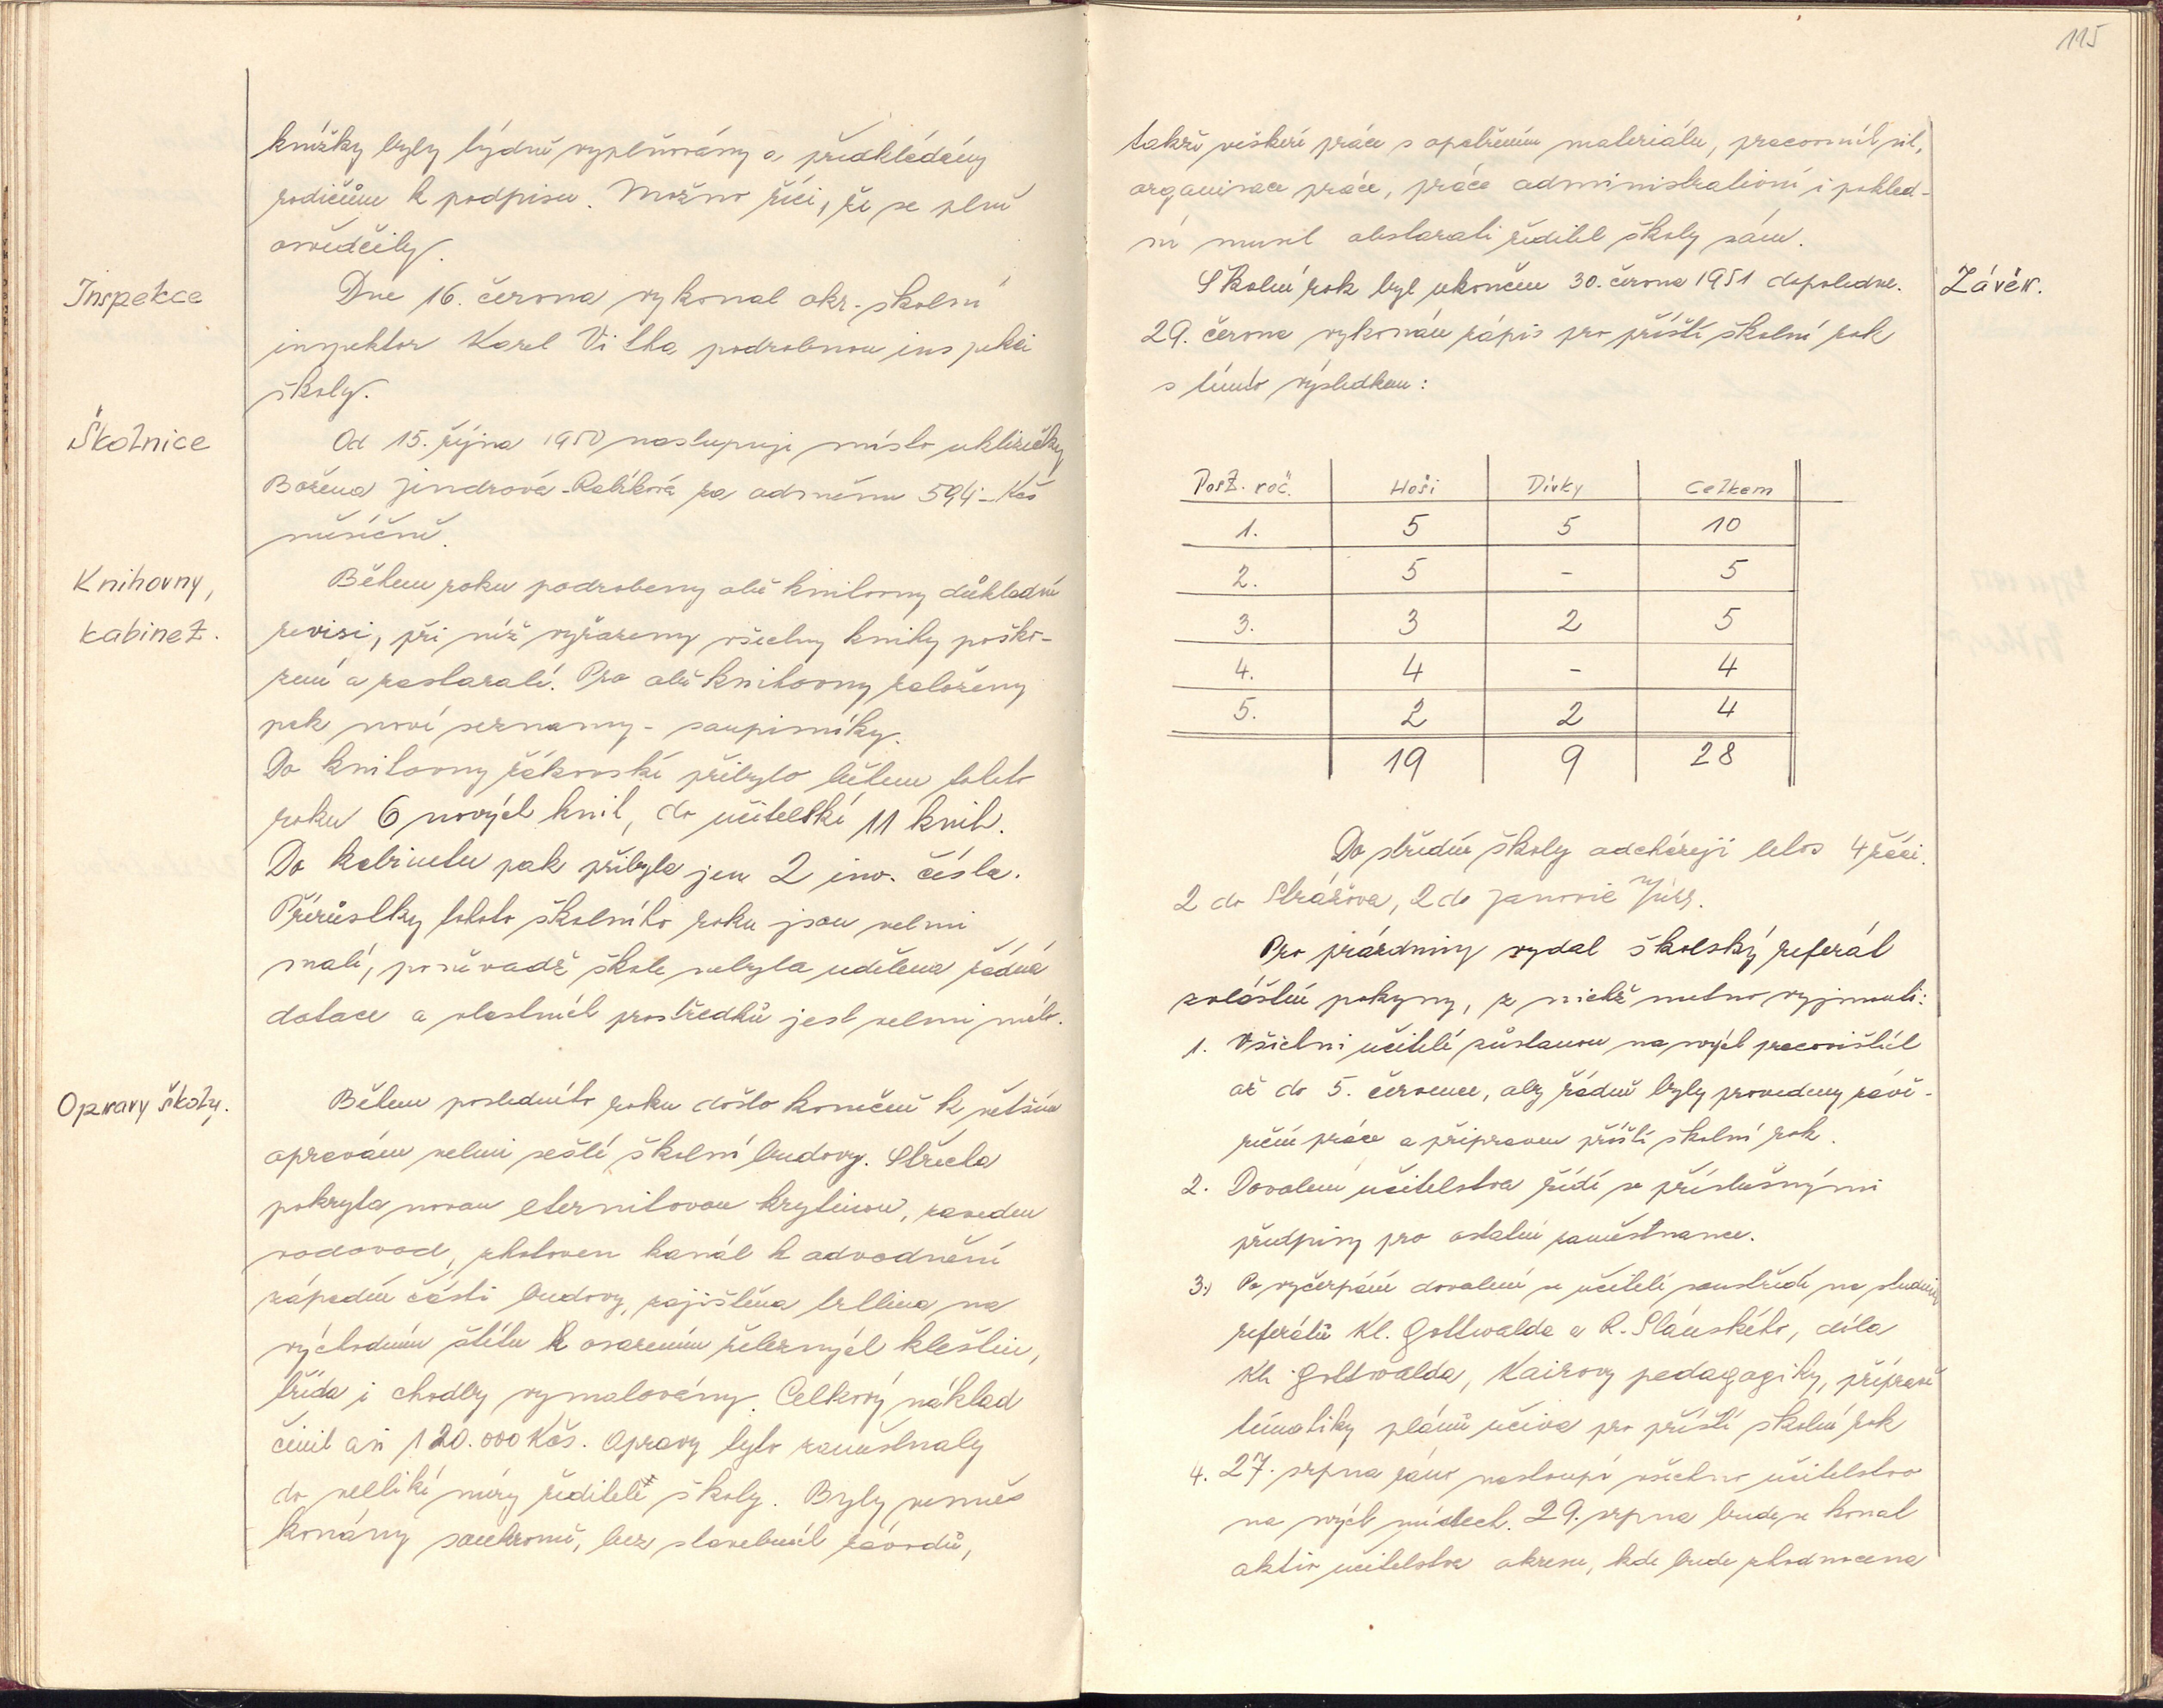 knížky byly týdně vyplňovány a předkládány
rodičům k podpisu. Možno říci, že se plně
osvědčily.
Inspekce
Dne 16. června vykonal okr. školní
inspektor Karel Vitha podrobnou inspekci
školy.
Školnice
Od 15. října 1950 nastupuje místo uklizečky
Božena Jindrová-Rabíková za odměnu 594.- Kčs
měsíčně.
Knihovny,
kabinet.
Během roku podrobeny obě knihovny důkladné
revisi, při níž vyřazeny všechny knihy poško-
zené a zastaralé. Pro obě knihovny založeny
pak nové seznamy - soupisníky.
Do knihovny žákovské přibylo během tohoto
roku 6 nových knih, do učitelské 11 knih.
Do kabinetu pak přibyla jen 2 inv. čísla.
Přírůstky tohoto školního roku jsou velmi
malé, poněvadž škole nebyla udělena žádná
dotace a vlastních prostředků jest velmi málo.
Opravy školy.
Během posledního roku došlo konečně k větším
opravám velmi sešlé školní budovy. Střecha
pokryta novou eternitovou krytinou, zaveden
vodovod, zhotoven kanál k odvodnění
západní části budovy, zajištěna trhlina na
východním štítu k osazením železných kleštin,
třída i chodby vymalovány. Celkový náklad
činil asi 120.000 Kčs. Opravy tyto zaměstnaly
do velliké míry ředitele školy. Byly vesměs
konány soukromě, bez stavebních závodů,
115
takže veškeré práce s opatřením materiálu, pracovních sil,
organisace práce, práce administrativní i poklad-
ní musil obstarati ředitel školy sám.
Závěr.
Školní rok byl ukončen 30. června 1951 dopoledne.
29. června vykonán zápis pro příští školní rok
s tímto výsledkem:
Post. roč. Hoši Dívky Celkem
1. 5 5 10
2. 5 - 5
3. 3 2 5
4. 4 - 4
5. 2 2 4
19 9 28
Do střední školy odcházejí letos 4 žáci.
2 do Strážova, 2 do Janovic n/Úhl.
Pro prázdniny vydal školský referát
zvláštní pokyny, z nichž nutno vyjmouti:
1. Všichni učitelé zůstanou na svých pracovištích
až do 5. července, aby řádně byly provedeny závě-
rečné práce a připraven příští školní rok.
2. Dovolení učitelstva řídí se příslušnými
předpisy pro ostatní zaměstnance.
3.) Po vyčerpání dovolené se učitelé soustředí na studium
referátů Kl. Gottwalda a R. Slánského, díla
Kl. Gottwalda, Kairovy pedagogiky, přípravě
tématiky plánů učiva pro příští školní rok
4. 27. srpna ráno nastoupí všechno učitelstvo
na svých místech. 29. srpna bude se konat
aktiv učitelstva okresu, kde bude zhodnocena